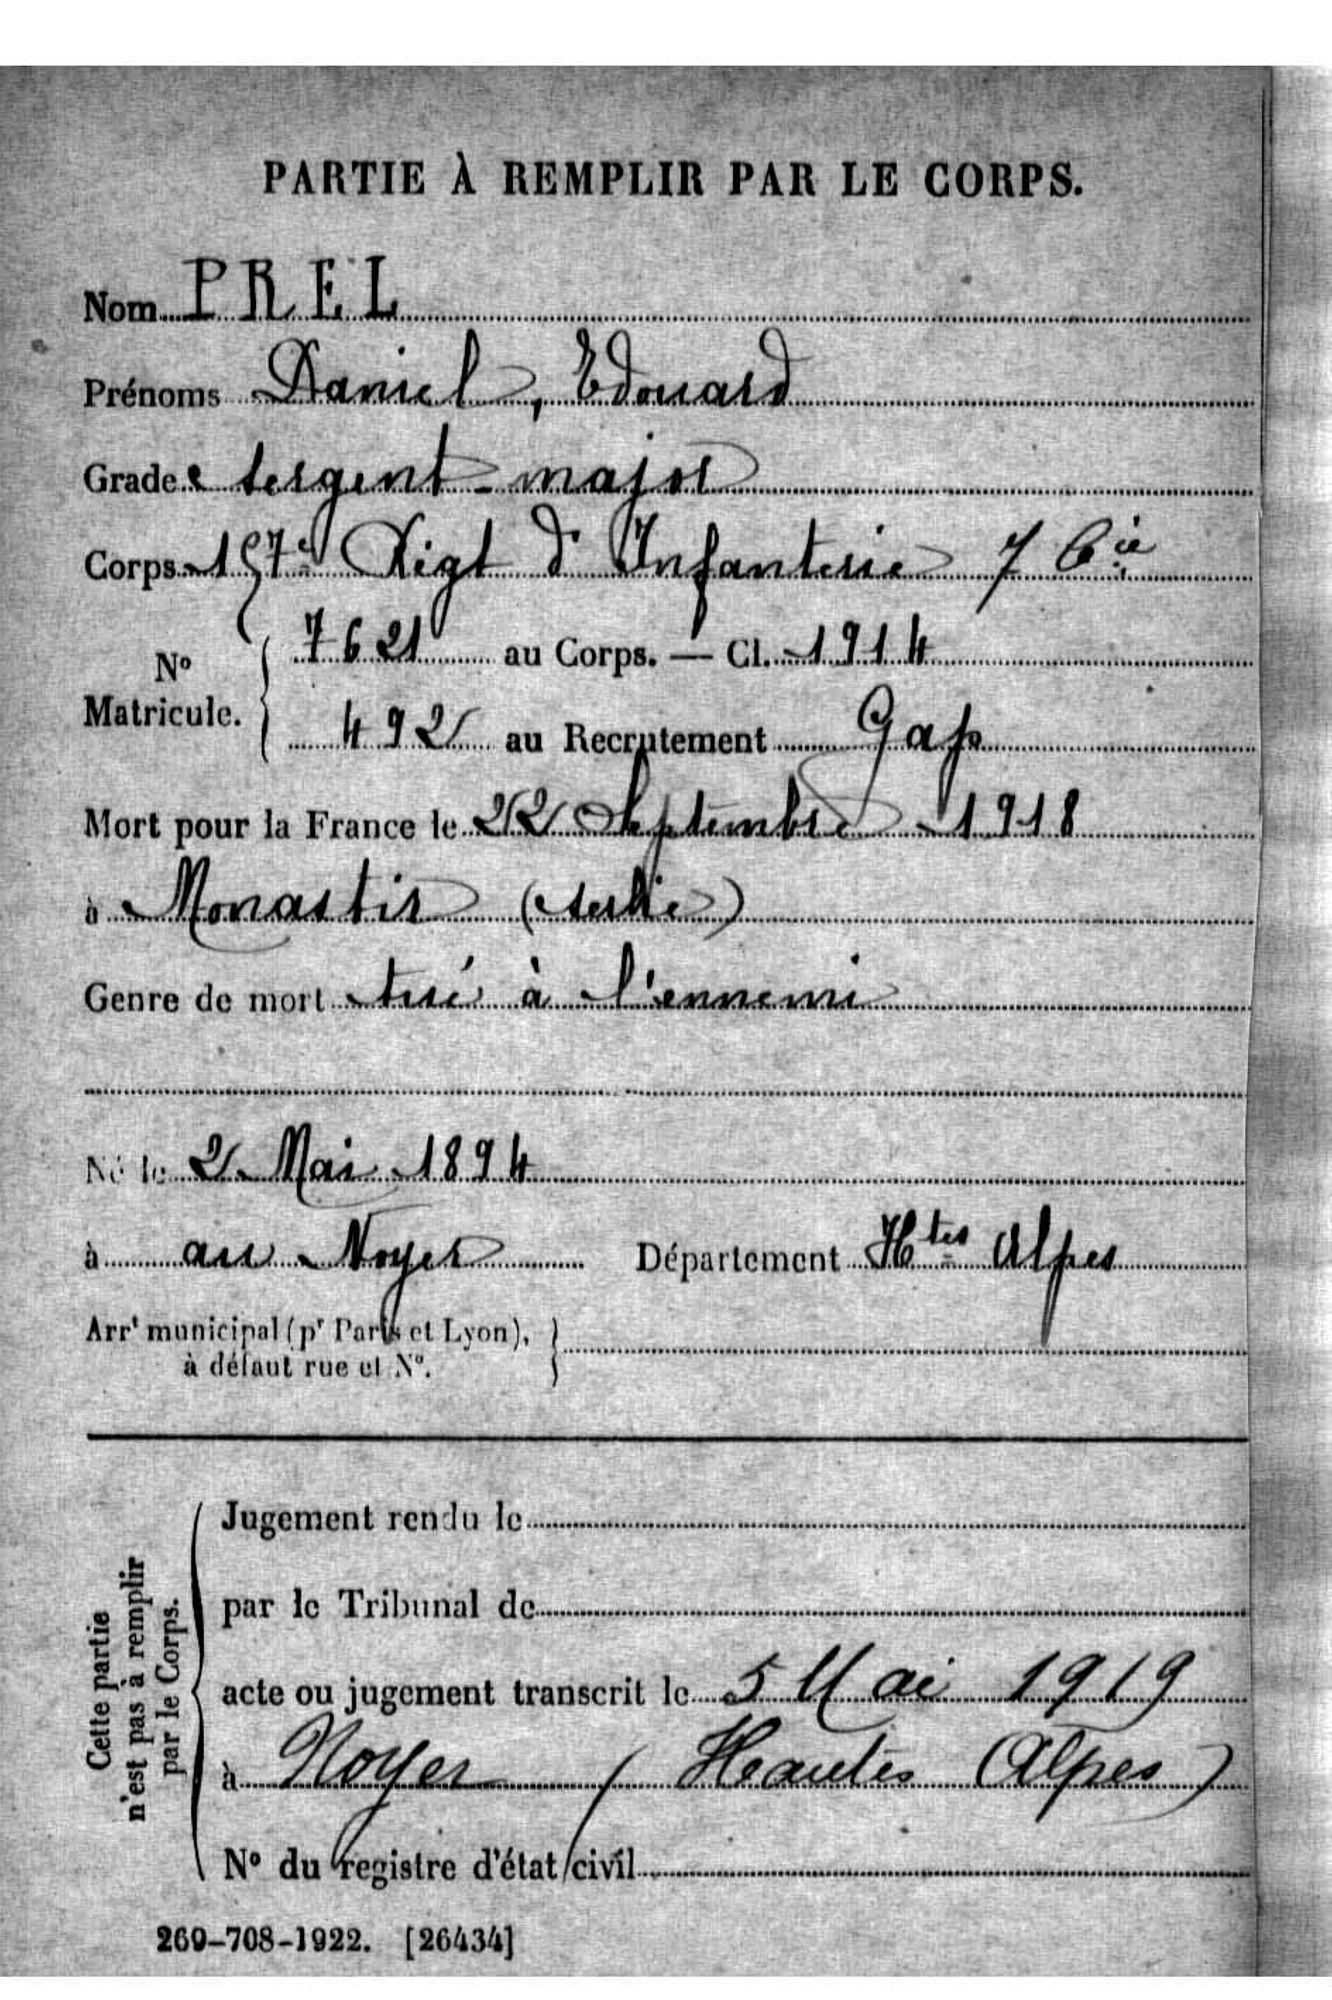 PARTIE À REMPLIR PAR LE CORPS.
Nom PREL
Prénoms Daniel, Edouard
Grade sergent-major
Corps 157e Régt d'Infanterie 7 Cie
No Matricule. { 7621 au Corps. — Cl. 1914
492 au Recrutement Gap
Mort pour la France le 22 Septembre 1918
à Monastir (serbie)
Genre de mort tué à l'ennemi
Né le 2 Mai 1894
à au Noyer Département Htes Alpes
Arrt municipal (pr Paris et Lyon), }
à défaut rue et No.
Cette partie
n'est pas à remplir
par le Corps.
Jugement rendu le
par le Tribunal de
acte ou jugement transcrit le 5 Mai 1919
à Noyer (Hautes Alpes)
No du registre d'état civil
269-708-1922. [26434]